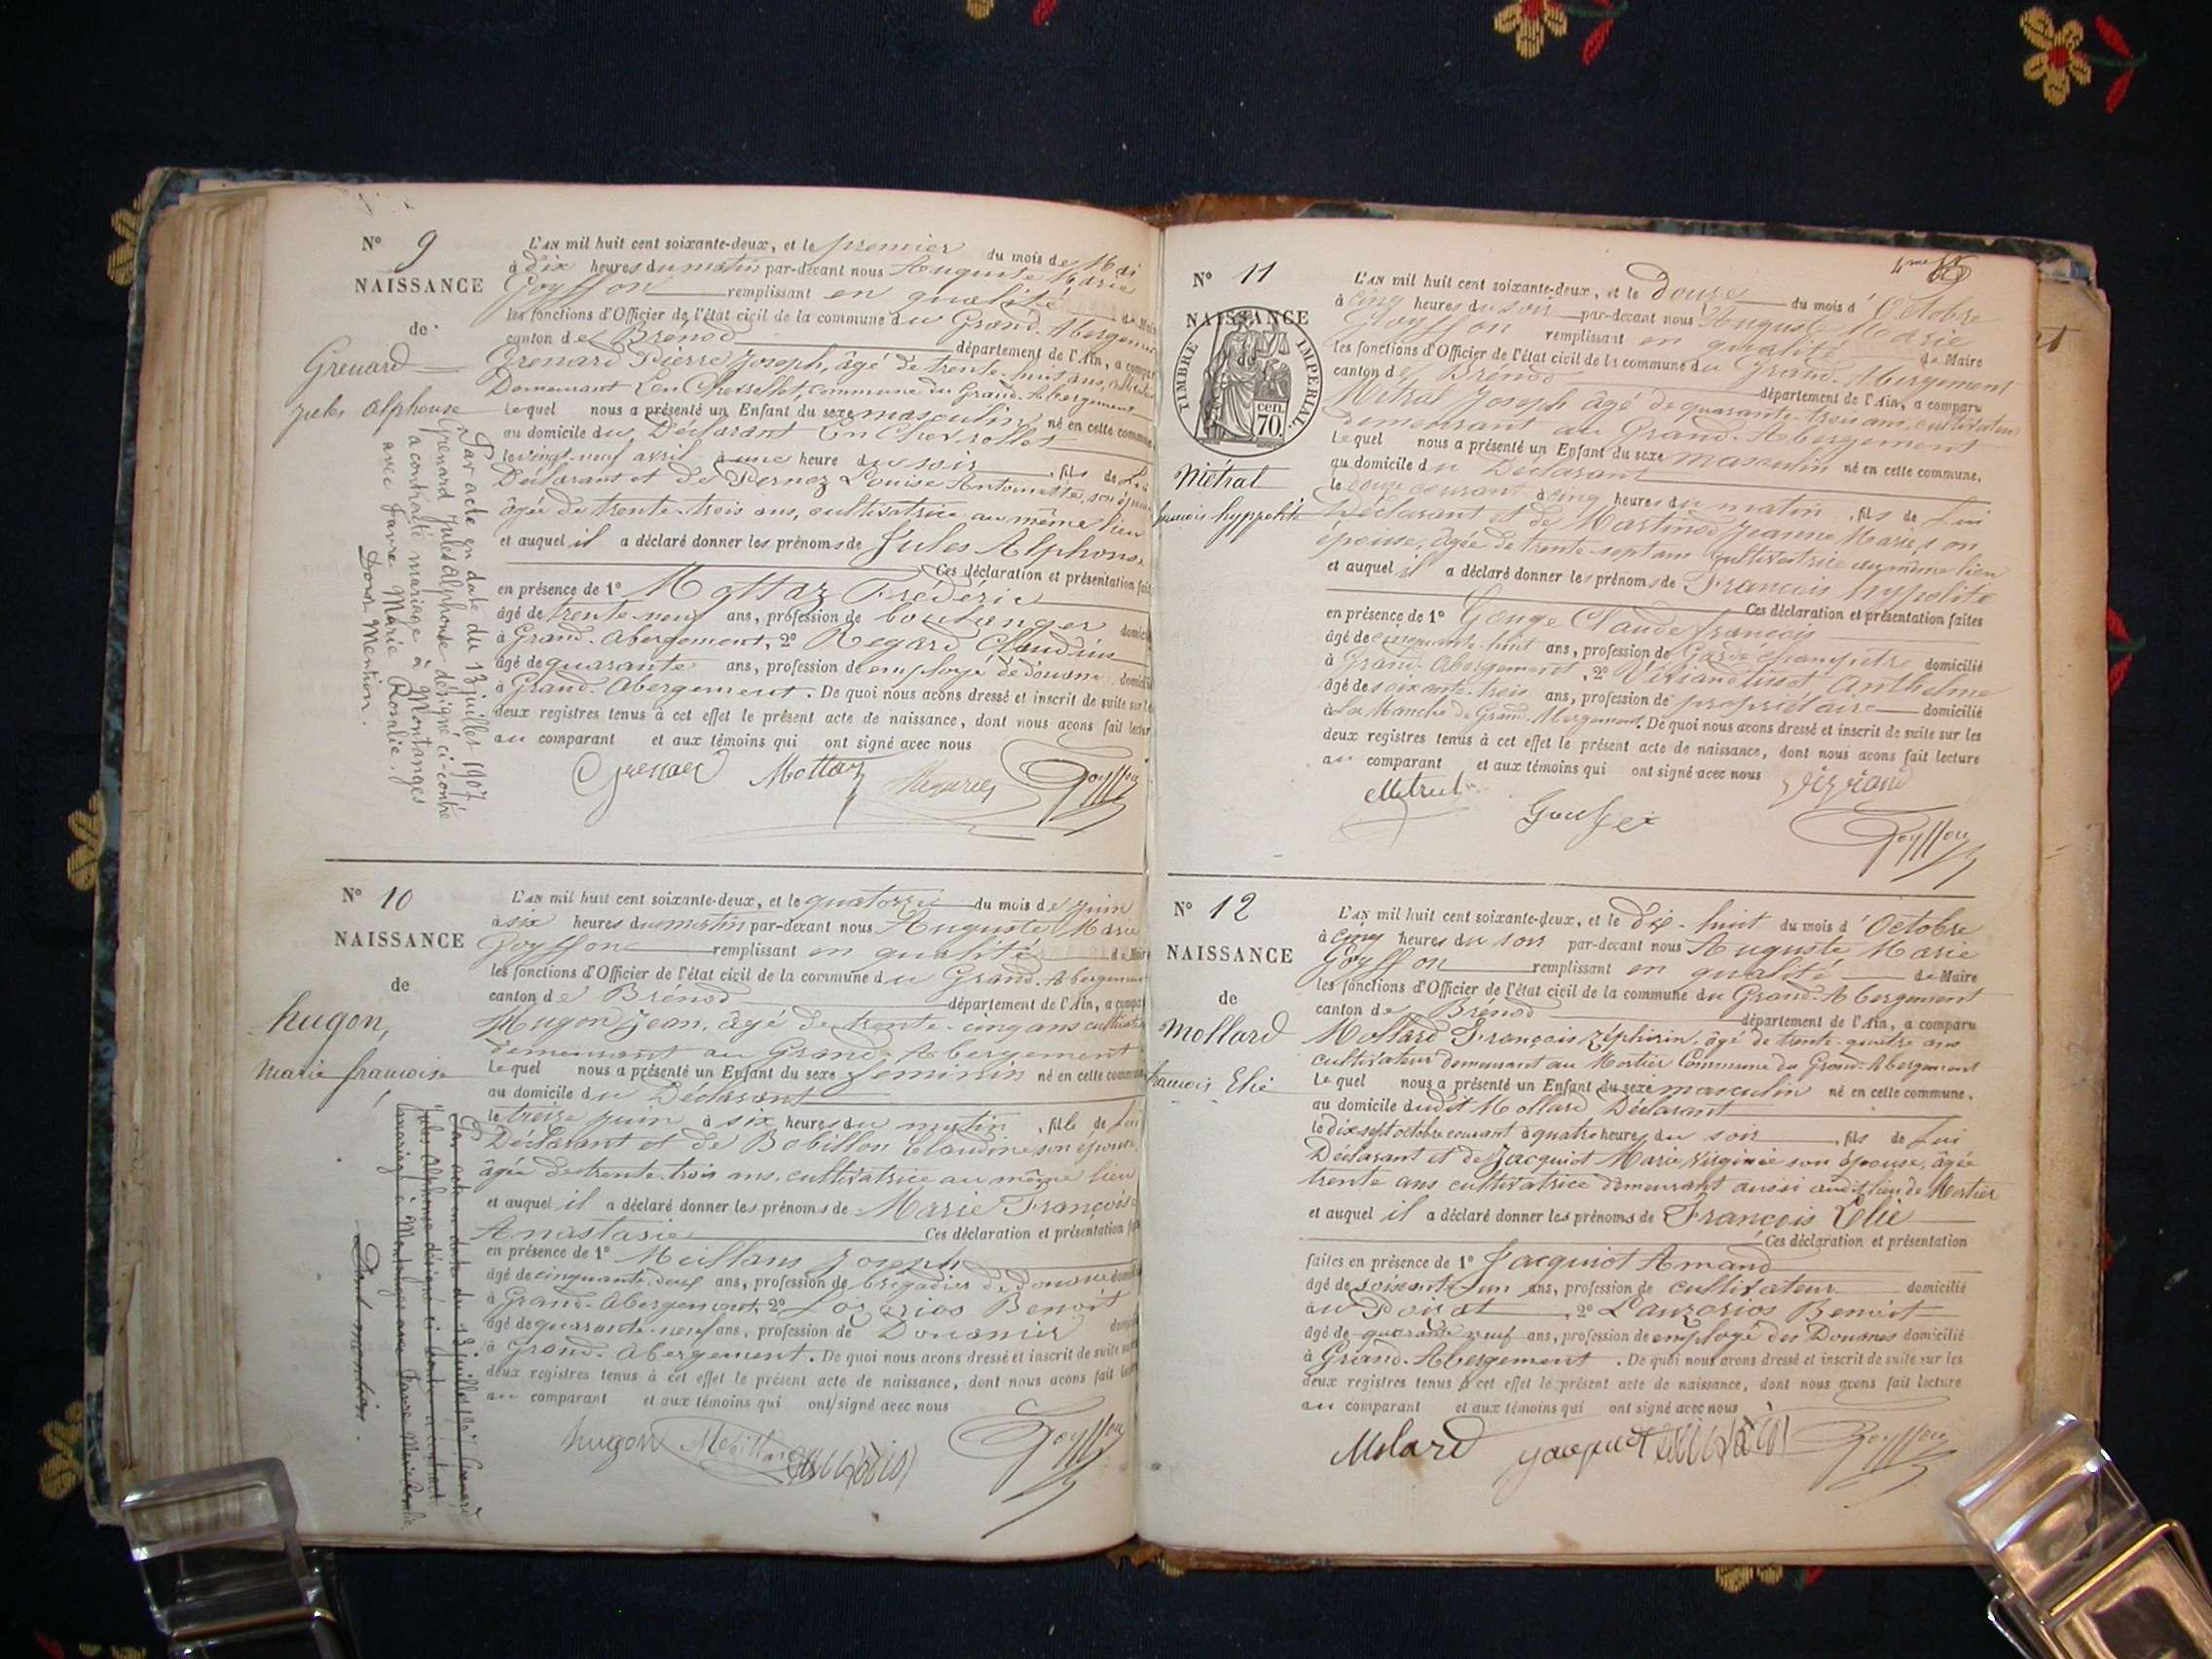 N° 9
NAISSANCE
de
Grenard
Jules Alphonse
Par acte en date du 13 juillet 1907
Grenard Jules Alphonse désigné ci-contre
a contracté mariage à Montanges
avec Favre Marie Rosalie.
Dont Mention.
L'AN mil huit cent soixante-deux, et le premier du mois de Mai
à dix heures du matin par-devant nous Auguste Marie
Goyffon remplissant en qualité de Maire
les fonctions d'Officier de l'état civil de la commune du Grand-Abergement
canton de Brénod département de l'Ain, a comparu
Grenard Pierre Joseph, âgé de trente-huit ans,
Demeurant En Chevrollet, Commune du Grand-Abergement
Lequel nous a présenté un Enfant du sexe masculin né en cette commune,
au domicile du Déclarant En Chevrollet
le vingt-neuf avril à une heure du soir, fils de Lui
Déclarant et de Pernoz Louise Antoinette, son épouse
âgée de trente-trois ans, cultivatrice au même lieu
et auquel il a déclaré donner les prénoms de Jules Alphonse
Ces déclaration et présentation faites
en présence de 1° Mottaz Fréderic
âgé de trente-neuf ans, profession de boulanger domicilié
à Grand-Abergement, 2° Regard Claudius
âgé de quarante ans, profession de employé de douane domicilié
à Grand-Abergement. De quoi nous avons dressé et inscrit de suite sur les
deux registres tenus à cet effet le présent acte de naissance, dont nous avons fait lecture
au comparant et aux témoins qui ont signé avec nous
Grenard Mottaz Goyffon
N° 10
NAISSANCE
de
hugon,
Marie françoise
Par acte en date du 13 juillet 1907 Grenard
Jules Alphonse désigné ci-contre a contracté
mariage à Montanges avec Favre Marie Rosalie.
Dont mention.
L'AN mil huit cent soixante-deux, et le quatorze du mois de Juin
à six heures du matin par-devant nous Auguste Marie
Goyffon remplissant en qualité de Maire
les fonctions d'Officier de l'état civil de la commune du Grand-Abergement
canton de Brénod département de l'Ain, a comparu
Hugon Jean, âgé de trente-cinq ans cultivateur
demeurant au Grand-Abergement
Lequel nous a présenté un Enfant du sexe féminin né en cette commune
au domicile du Déclarant
le treize juin à six heures du matin, fille de Lui
Déclarant et de Bobillon Claudine son épouse,
âgée de trente-trois ans, cultivatrice au même lieu
et auquel il a déclaré donner les prénoms de Marie Françoise
Anastasie Ces déclaration et présentation faites
en présence de 1° Meillans Joseph
âgé de cinquante-deux ans, profession de brigadier de Douane domicilié
à Grand-Abergement, 2° Benoit
âgé de quarante-neuf ans, profession de Douanier domicilié
à Grand-Abergement. De quoi nous avons dressé et inscrit de suite sur les
deux registres tenus à cet effet le présent acte de naissance, dont nous avons fait lecture
au comparant et aux témoins qui ont signé avec nous
hugon Goyffon
N° 11
NAISSANCE
de
TIMBRE IMPERIAL
70 cen.
Métral
françois hyppolite
L'AN mil huit cent soixante-deux, et le douze du mois d'Octobre
à cinq heures du soir par-devant nous Auguste Marie
Goyffon remplissant en qualité de Maire
les fonctions d'Officier de l'état civil de la commune du Grand-Abergement
canton de Brénod département de l'Ain, a comparu
Métral Joseph âgé de quarante-trois ans, cultivateur
demeurant au Grand-Abergement
Lequel nous a présenté un Enfant du sexe masculin né en cette commune,
au domicile du Déclarant
le douze courant à cinq heures du matin, fils de Lui
Déclarant et de Martinod Jeanne Marie, son
épouse, âgée de trente-sept ans cultivatrice au même lieu
et auquel il a déclaré donner les prénoms de François hypolite
Ces déclaration et présentation faites
en présence de 1° Gouge Claude françois
âgé de cinquante-huit ans, profession de Garde champêtre domicilié
à Grand-Abergement, 2° Anthelme
âgé de soixante-trois ans, profession de propriétaire domicilié
à La Manche de Grand-Abergement. De quoi nous avons dressé et inscrit de suite sur les
deux registres tenus à cet effet le présent acte de naissance, dont nous avons fait lecture
au comparant et aux témoins qui ont signé avec nous
Métral Goyffon
N° 12
NAISSANCE
de
Mollard
françois Elie
L'AN mil huit cent soixante-deux, et le dix-huit du mois d'Octobre
à cinq heures du soir par-devant nous Auguste Marie
Goyffon remplissant en qualité de Maire
les fonctions d'Officier de l'état civil de la commune du Grand-Abergement
canton de Brénod département de l'Ain, a comparu
Mollard François Zéphirin, âgé de trente-quatre ans
cultivateur demeurant au Mortier Commune du Grand-Abergement
Lequel nous a présenté un Enfant du sexe masculin né en cette commune,
au domicile dudit Mollard Déclarant
le dix sept octobre courant à quatre heures du soir, fils de Lui
Déclarant et de Jacquiot Marie Virginie son épouse, âgée
trente ans cultivatrice demeurant aussi audit lieu de Mortier
et auquel il a déclaré donner les prénoms de François Elie
Ces déclaration et présentation
faites en présence de 1° Jacquiot Amand
âgé de soixante un ans, profession de cultivateur domicilié
au Poizat, 2° Lauzarios Benoit
âgé de quarante neuf ans, profession de employé des Douanes domicilié
à Grand-Abergement. De quoi nous avons dressé et inscrit de suite sur les
deux registres tenus à cet effet le présent acte de naissance, dont nous avons fait lecture
au comparant et aux témoins qui ont signé avec nous
Molard Jacquiot Goyffon